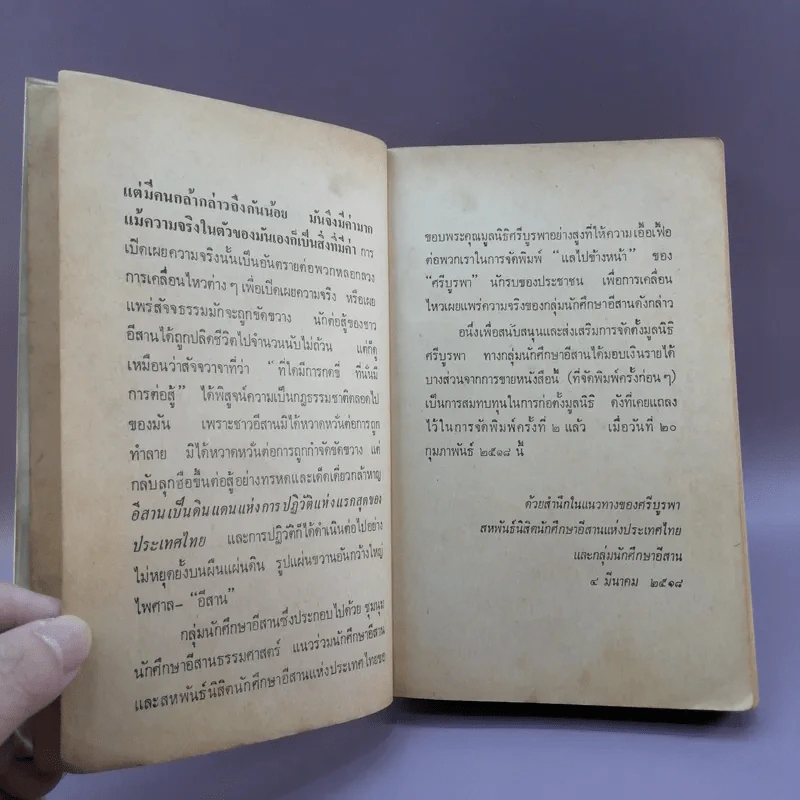 แต่มีคนกล้ากล่าวถึงกันน้อย มันจึงมีค่ามาก
แม้ความจริงในตัวของมันเองก็เป็นสิ่งที่มีค่า การ
เปิดเผยความจริงนั้นเป็นอันตรายต่อพวกหลอกลวง
การเคลื่อนไหวต่างๆ เพื่อเปิดเผยความจริง หรือเผย
แพร่สัจจธรรมมักจะถูกขัดขวาง นักต่อสู้ของชาว
อีสานได้ถูกปลิดชีวิตไปจำนวนนับไม่ถ้วน แต่ก็ดู
เหมือนว่าสัจจวาจาที่ว่า “ที่ใดมีการกดขี่ ที่นั่นมี
การต่อสู้” ได้พิสูจน์ความเป็นกฎธรรมชาติตลอดไป
ของมัน เพราะชาวอีสานมิได้หวาดหวั่นต่อการถูก
ทำลาย มิได้หวาดหวั่นต่อการถูกกำจัดขัดขวาง แต่
กลับลุกฮือขึ้นต่อสู้อย่างทรหดและเด็ดเดี่ยวกล้าหาญ
อีสานเป็นดินแดนแห่งการปฏิวัติแห่งแรกสุดของ
ประเทศไทย และการปฏิวัติก็ได้ดำเนินต่อไปอย่าง
ไม่หยุดยั้งบนผืนแผ่นดิน รูปแผ่นขวานอันกว้างใหญ่
ไพศาล– “อีสาน”
กลุ่มนักศึกษาอีสานซึ่งประกอบไปด้วย ชุมนุม
นักศึกษาอีสานธรรมศาสตร์ แนวร่วมนักศึกษาอีสาน
และสหพันธ์นิสิตนักศึกษาอีสานแห่งประเทศไทยขอ
ขอบพระคุณมูลนิธิศรีบูรพาอย่างสูงที่ให้ความเอื้อเฟื้อ
ต่อพวกเราในการจัดพิมพ์ “แลไปข้างหน้า” ของ
“ศรีบูรพา” นักรบของประชาชน เพื่อการเคลื่อน
ไหวเผยแพร่ความจริงของกลุ่มนักศึกษาอีสานดังกล่าว
อนึ่งเพื่อสนับสนุนและส่งเสริมการจัดตั้งมูลนิธิ
ศรีบูรพา ทางกลุ่มนักศึกษาอีสานได้มอบเงินรายได้
บางส่วนจากการขายหนังสือนี้ (ที่จัดพิมพ์ครั้งก่อนๆ)
เป็นการสมทบทุนในการก่อตั้งมูลนิธิ ดังที่เคยแถลง
ไว้ในการจัดพิมพ์ครั้งที่ ๒ แล้ว เมื่อวันที่ ๒๐
กุมภาพันธ์ ๒๕๑๘ นี้
ด้วยสำนึกในแนวทางของศรีบูรพา
สหพันธ์นิสิตนักศึกษาอีสานแห่งประเทศไทย
และกลุ่มนักศึกษาอีสาน
๔ มีนาคม ๒๕๑๘